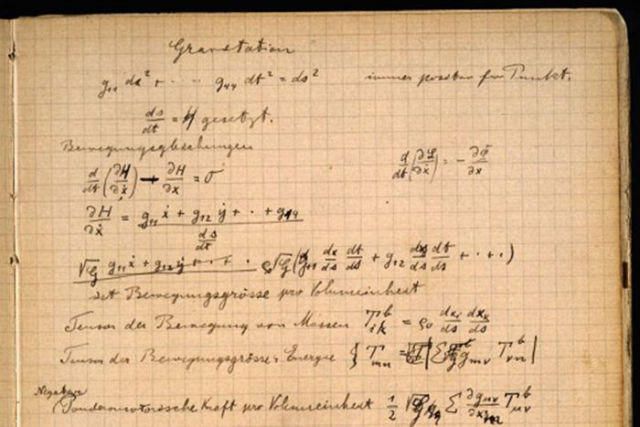 Gravitation
g₁₁ dx² + · · · g₄₄ dt² = ds² immer positiv für Punkt.
ds/dt = H gesetzt.
Bewegungsgleichungen
d/dt (∂H/∂ẋ) − ∂H/∂x = 0 d/dt (∂L/∂ẋ) = − ∂Φ/∂x
∂H/∂ẋ = (g₁₁ ẋ + g₁₂ ẏ + · · + g₁₄) / (ds/dt)
√G g₁₁ ẋ + g₁₂ ẏ + · · · · ρ√G (g₁₁ dx/ds dt/ds + g₁₂ dy/ds dt/ds + · + · )
ist Bewegungsgrösse pro Volumeinheit
Tensor der Bewegung von Massen Tᵇᵢₖ = ρ₀ dxᵢ/ds dxₖ/ds
Tensor der Bewegungsgrösse u. Energie Tₘₙ = Σ √G gₘᵥ Tᵇᵥₙ
Negative
Ponderomotorische Kraft pro Volumeinheit 1/2 √G Σ ∂gμν/∂xₘ Tᵇμν